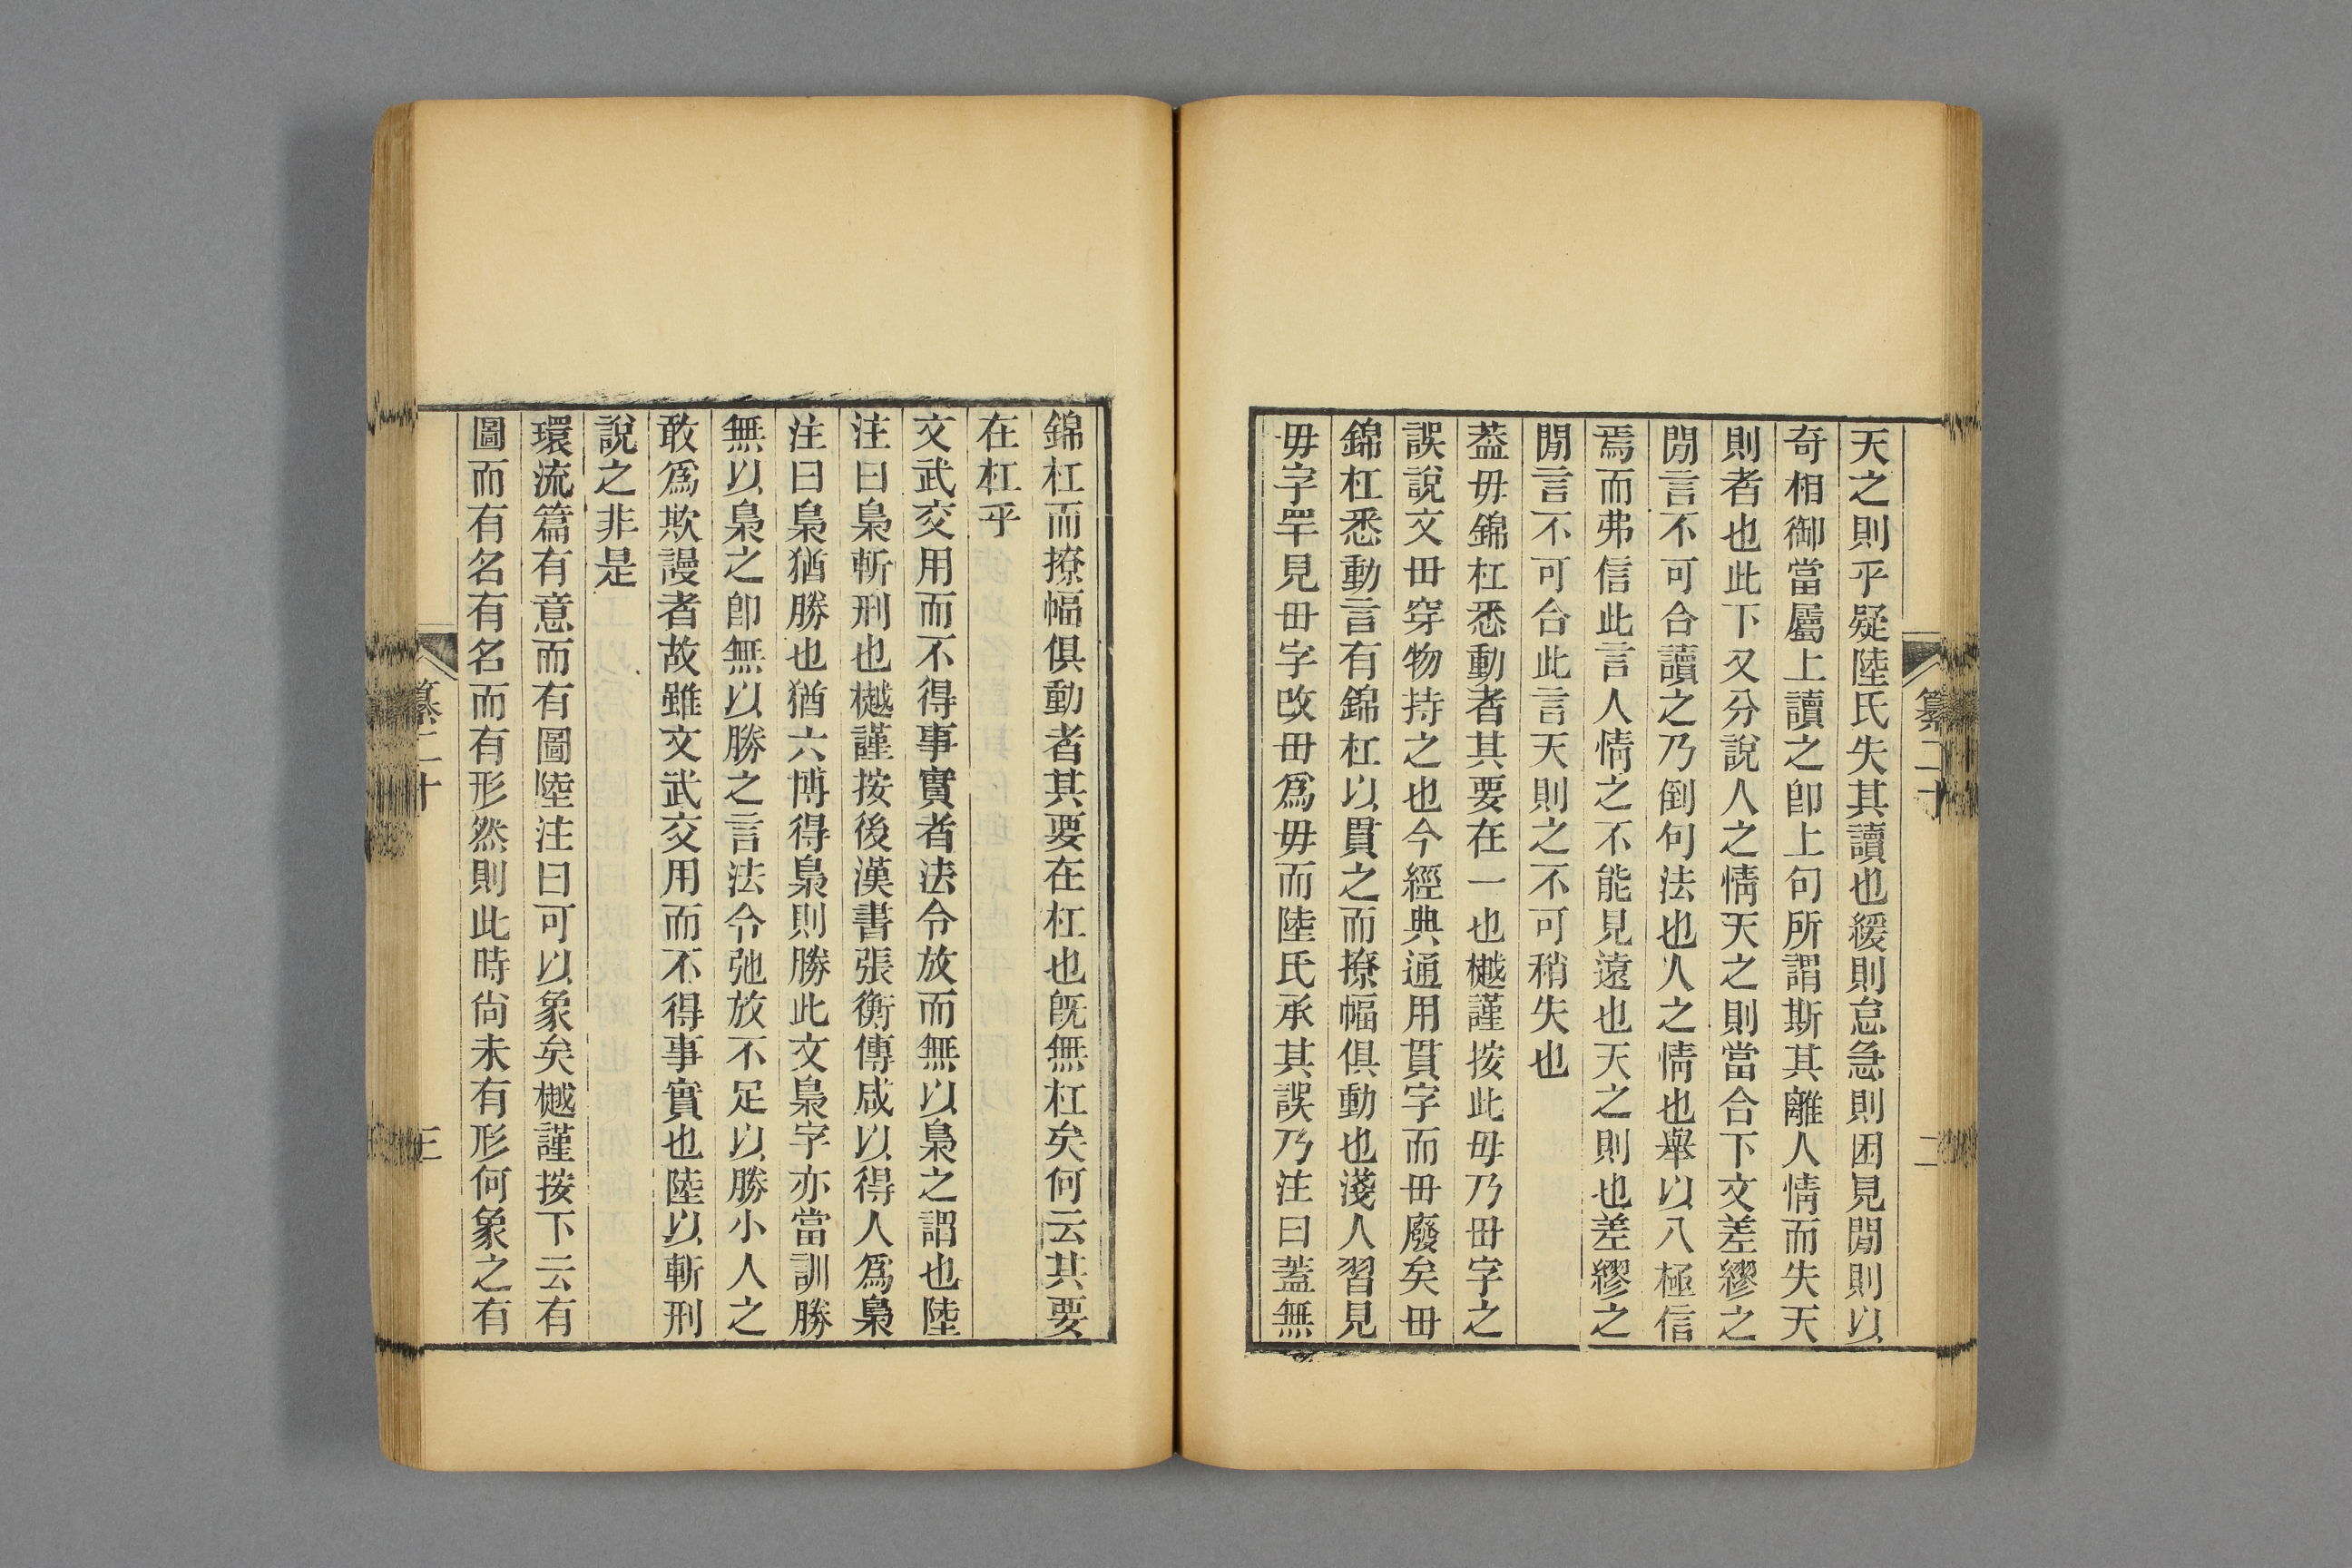 天之則乎疑陸氏失其讀也緩則怠急則困見閒則以
奇相御當屬上讀之卽上句所謂斯其離人情而失天
則者也此下又分說人之情天之則當合下文差繆之
閒言不可合讀之乃倒句法也人之情也舉以八極信
焉而弗信此言人情之不能見遠也天之則也差繆之
閒言不可合此言天則之不可稍失也
葢毋錦杠悉動者其要在一也樾謹按此毋乃毌字之
誤說文毌穿物持之也今經典通用貫字而毌廢矣毌
錦杠悉動言有錦杠以貫之而撩幅俱動也淺人習見
毋字罕見毌字改毌爲毋而陸氏承其誤乃注曰蓋無
纂二十
二
錦杠而撩幅俱動者其要在杠也旣無杠矣何云其要
在杠乎
文武交用而不得事實者法令放而無以梟之謂也陸
注曰梟斬刑也樾謹按後漢書張衡傳咸以得人爲梟
注曰梟猶勝也猶六博得梟則勝此文梟字亦當訓勝
無以梟之卽無以勝之言法令弛放不足以勝小人之
敢爲欺謾者故雖文武交用而不得事實也陸以斬刑
說之非是
環流篇有意而有圖陸注曰可以象矣樾謹按下云有
圖而有名有名而有形然則此時尙未有形何象之有
纂二十
三